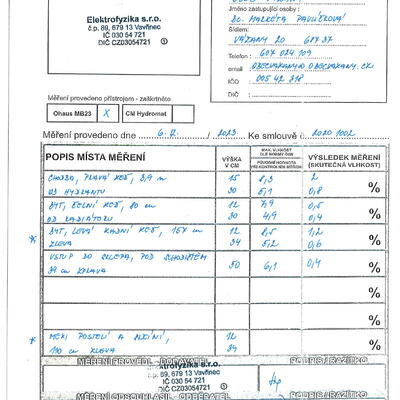 Elektrofyzika s.r.o.
č.p. 89, 679 13 Vavřinec
IČ 030 54 721
DIČ CZ03054721
Jméno zastupující osoby :
Bc. MARKÉTA PAVLÍČKOVÁ
Sídlem:
VÁŽANY 20 679 37
Telefon :
607 024 109
email
IČO
005 42 318
DIČ
Měření provedeno přístrojem - zaškrtněte
Ohaus MB23 X CM Hydromat
Měření provedeno dne 6. 2. / 2023 Ke smlouvě č. 2020 1002
POPIS MÍSTA MĚŘENÍ VÝŠKA V CM MAX. VLHKOST DLE NORMY ČSN PŮVODNÍ HODNOTA PŘI KONTROLNÍM MĚŘENÍ VÝSLEDEK MĚŘENÍ (SKUTEČNÁ VLHKOST)
CHODBA, PRAVÁ ZEĎ, 3,9 m 15 8,3 2
OD HYDRANTU 30 6,1 0,8 %
BYT, ČELNÍ ZEĎ, 80 cm 12 7,9 0,5
OD RADIÁTORU 30 4,9 0,4 %
* BYT, LEVÁ ZADNÍ ZEĎ, 154 cm 12 8,5 1,2
ZLEVA 34 5,2 0,6 %
VSTUP DO SKLEPA, POD SCHODIŠTĚM
39 cm ZPRAVA 50 6,1 0,4 %
%
%
* MEZI POSTELÍ A SKŘÍNÍ, 12
110 cm ZLEVA 34 %
MĚŘENÍ PROVEDL - DODAVATEL PODPIS / RAZÍTKO
Elektrofyzika s.r.o.
č.p. 89, 679 13 Vavřinec
IČ 030 54 721
DIČ CZ03054721
MĚŘENÍ ODSOUHLASIL - ODBĚRATEL PODPIS / RAZÍTKO